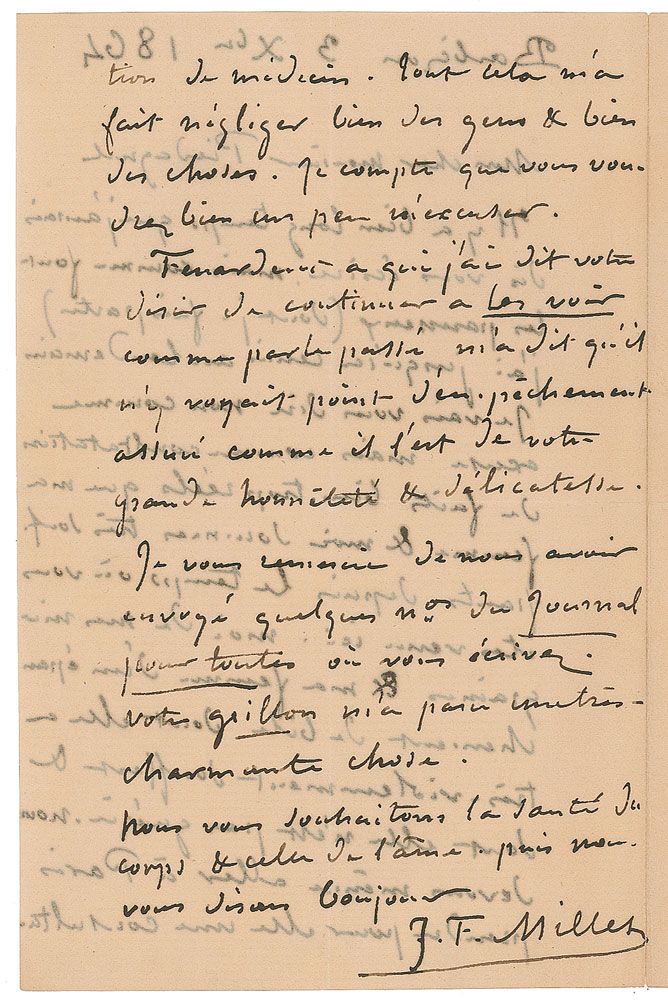 tion de médecin. Tout cela m'a
fait négliger bien des gens & bien
des choses. Je compte que vous vou-
drez bien un peu m'excuser.
Feuardent a qui j'ai dit votre
désir de continuer a les voir
comme par le passé m'a dit qu'il
n'y voyait point d'empêchement
assuré comme il l'est de votre
grande honnêteté & délicatesse.
Je vous remercie de nous avoir
envoyé quelques nos du Journal
pour toutes où vous écrivez.
votre grillon m'a paru une très-
charmante chose.
Nous vous souhaitons la santé du
corps & celle de l'âme. puis nous
vous disons bonjour
J. F. Millet